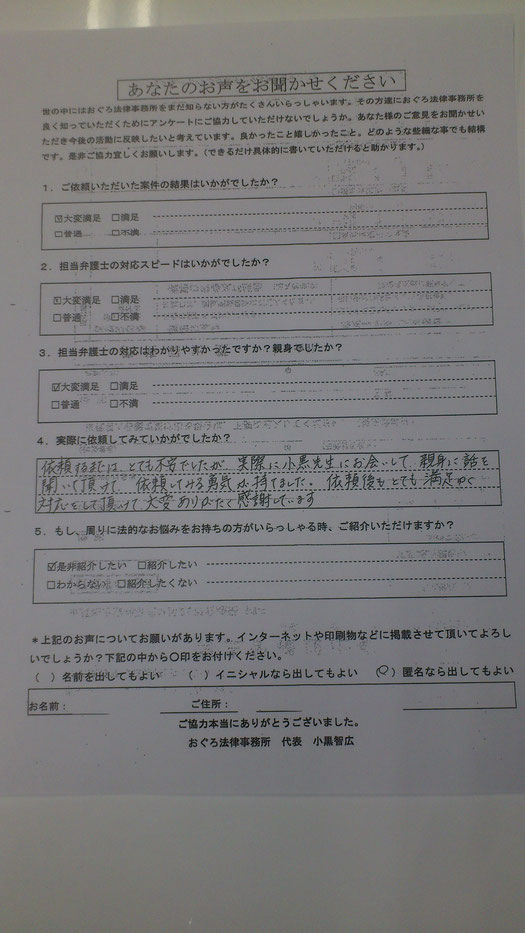 あなたのお声をお聞かせください
世の中にはおぐろ法律事務所をまだ知らない方がたくさんいらっしゃいます。その方達におぐろ法律事務所を
良く知っていただくためにアンケートにご協力していただけないでしょうか。あなた様のご意見をお聞かせい
ただき今後の活動に反映したいと考えています。良かったこと嬉しかったこと。どのような些細な事でも結構
です。是非ご協力宜しくお願いします。(できるだけ具体的に書いていただけると助かります。)
1．ご依頼いただいた案件の結果はいかがでしたか？
☑大変満足 □満足
□普通 □不満
2．担当弁護士の対応スピードはいかがでしたか？
☑大変満足 □満足
□普通 □不満
3．担当弁護士の対応はわかりやすかったですか？親身でしたか？
☑大変満足 □満足
□普通 □不満
4．実際に依頼してみていかがでしたか？
依頼するまでは、とても不安でしたが、実際に小黒先生にお会いして、親身に話を
聞いて頂けて、依頼してみる勇気が持てました。依頼後もとても満足のゆく
対応をして頂けて大変ありがたく感謝しています
5．もし、周りに法的なお悩みをお持ちの方がいらっしゃる時、ご紹介いただけますか？
☑是非紹介したい □紹介したい
□わからない □紹介したくない
＊上記のお声についてお願いがあります。インターネットや印刷物などに掲載させて頂いてよろし
いでしょうか？下記の中から〇印をお付けください。
( ) 名前を出してもよい ( ) イニシャルなら出してもよい (〇) 匿名なら出してもよい
お名前： ご住所：
ご協力本当にありがとうございました。
おぐろ法律事務所 代表 小黒智広